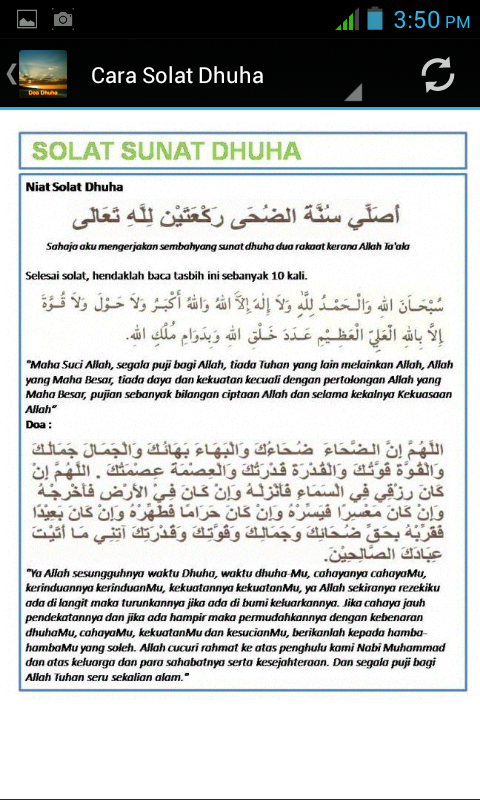 3:50 PM
Cara Solat Dhuha
Doa Dhuha
SOLAT SUNAT DHUHA
Niat Solat Dhuha
أُصَلِّي سُنَّةَ الضُحَى رَكْعَتَيْنِ لِلَّهِ تَعَالَى
Sahaja aku mengerjakan sembahyang sunat dhuha dua rakaat kerana Allah Ta'ala
Selesai solat, hendaklah baca tasbih ini sebanyak 10 kali.
سُبْحَـانَ اللهِ وَالْـحَمْـدُ لِلّٰهِ وَلاَ إِلٰهَ إِلاَّ اللهُ وَاللهُ أَكْبَـرُ وَلاَ حَـوْلَ وَلاَ قُـوَّةَ
إِلاَّ بِاللهِ الْعَلِيِّ الْعَظِـيْمِ عَـدَدَ خَـلْقِ اللهِ وَبِدَوَامِ مُلْكِ اللهِ.
"Maha Suci Allah, segala puji bagi Allah, tiada Tuhan yang lain melainkan Allah, Allah
yang Maha Besar, tiada daya dan kekuatan kecuali dengan pertolongan Allah yang
Maha Besar, pujian sebanyak bilangan ciptaan Allah dan selama kekalnya Kekuasaan
Allah"
Doa :
اللَّهُمَّ إِنَّ الضَّحَاءَ ضُحَاءُكَ وَالْبَهَاءَ بَهَائُكَ وَالْجَمَالَ جَمَالُكَ
وَالْقُوَّةَ قُوَّتُكَ وَالْقُدْرَةَ قُدْرَتُكَ وَالْعِصْمَةَ عِصْمَتُكَ . اللَّهُمَّ إِنْ
كَانَ رِزْقِي فِي السَمَاءِ فَأَنْزِلْهُ وَإِنْ كَانَ فِي الأَرْضِ فَأَخْرِجْهُ
وَإِنْ كَانَ مُعْسِرًا فَيَسِّرْهُ وَإِنْ كَانَ حَرَامًا فَطَهِّرْهُ وَإِنْ كَانَ بَعِيْدًا
فَقَرِّبْهُ بِحَقِّ ضُحَائِكَ وَجَمَالِكَ وَقُوَّتِكَ وَقُدْرَتِكَ آتِنِي مَا أَتَيْتَ
عِبَادَكَ الصَّالِحِيْنَ.
"Ya Allah sesungguhnya waktu Dhuha, waktu dhuha-Mu, cahayanya cahayaMu,
kerinduannya kerinduanMu, kekuatannya kekuatanMu, ya Allah sekiranya rezekiku
ada di langit maka turunkannya jika ada di bumi keluarkannya. Jika cahaya jauh
pendekatannya dan jika ada hampir maka permudahkannya dengan kebenaran
dhuhaMu, cahayaMu, kekuatanMu dan kesucianMu, berikanlah kepada hamba-
hambaMu yang soleh. Allah cucuri rahmat ke atas penghulu kami Nabi Muhammad
dan atas keluarga dan para sahabatnya serta kesejahteraan. Dan segala puji bagi
Allah Tuhan seru sekalian alam."